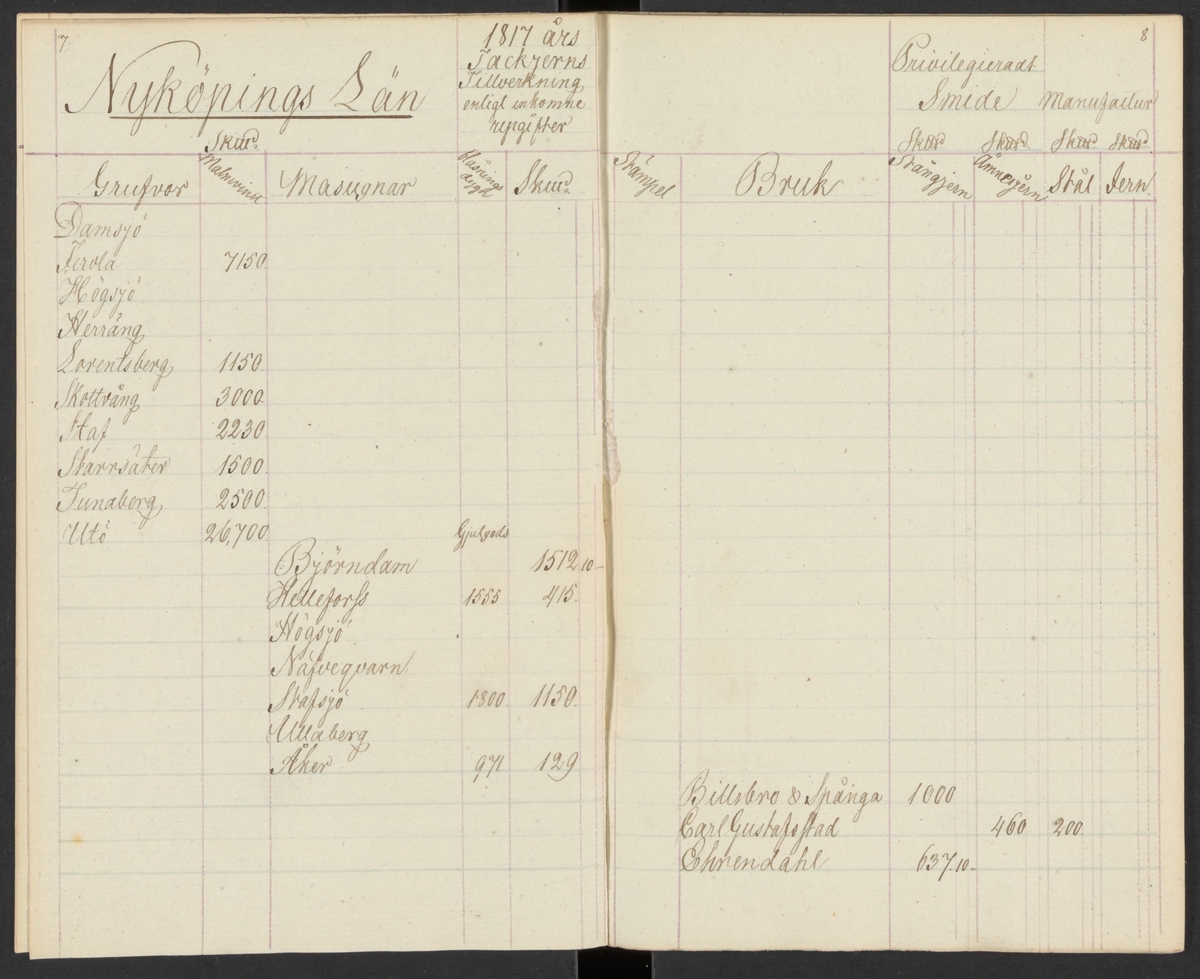 7.
Nyköpings Län
1817 års
Tackjerns
Tillverkning
enligt inkomne
upgifter
Skutt
Grufvor Malmvinst Masugnar Blåsnings dygn Skutt
Damsjö
Ferola 7150.
Högsjö
Herräng
Lorentsberg 1150.
Skottvång 3000
Staf 2230
Starrsäter 1500.
Tunaberg 2500.
Utö 26,700
Gjutgods
Björndam 1512 10-
Helleforss 1555 415.
Högsjö
Näfveqvarn
Stafsjö 1800. 1150.
Ullaberg
Åker 971 129
8
Privilegieradt
Smide Manufactur
Skutt Skutt Skutt Skutt
Stämpel Bruk Stångjern Ämnesjern Stål Jern.
Billsbro & Spånga 1000
Carl Gustafsstad 460 200.
Ehrendahl 637.10-